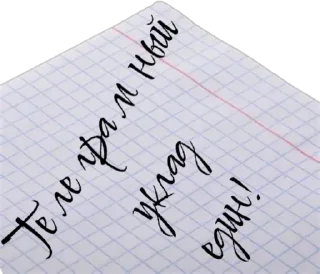 Телеграмный
уклад
един!